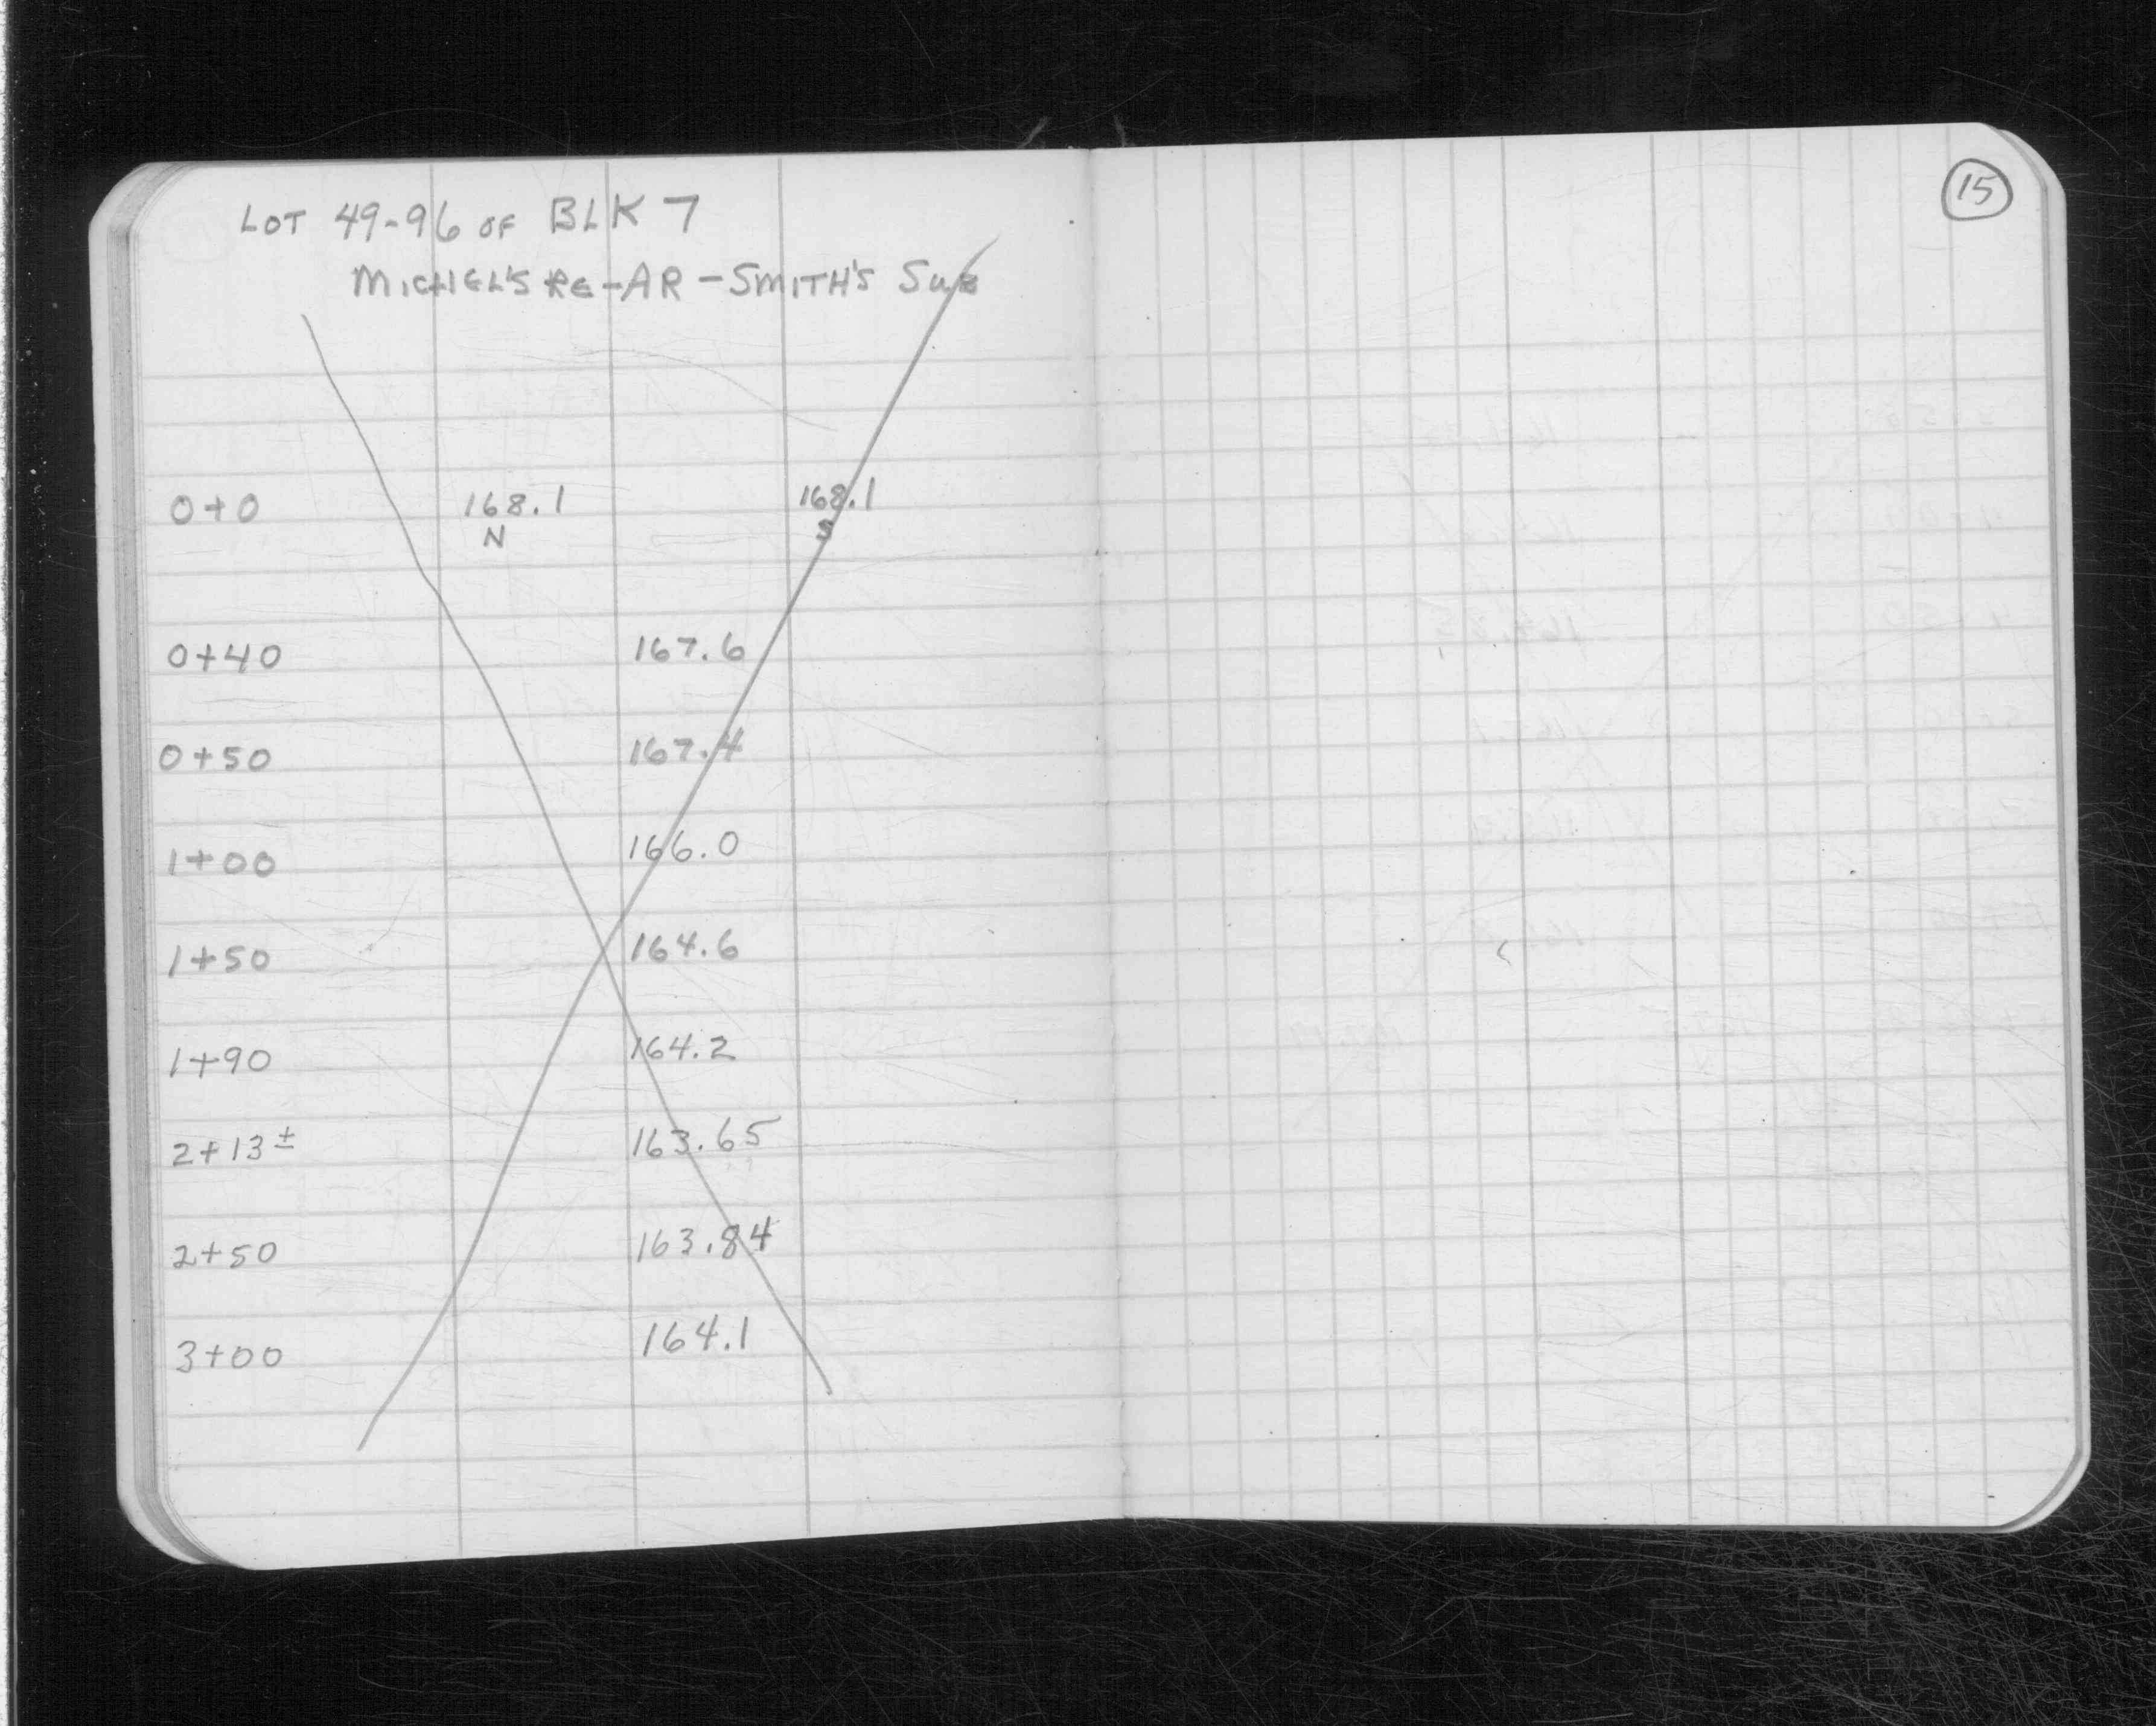 LOT 49-96 OF BLK 7
MICHEL'S RE-AR-SMITH'S SUB
15
0+0 168.1 168.1
N S
0+40 167.6
0+50 167.4
1+00 166.0
1+50 164.6
1+90 164.2
2+13± 163.65
2+50 163.84
3+00 164.1